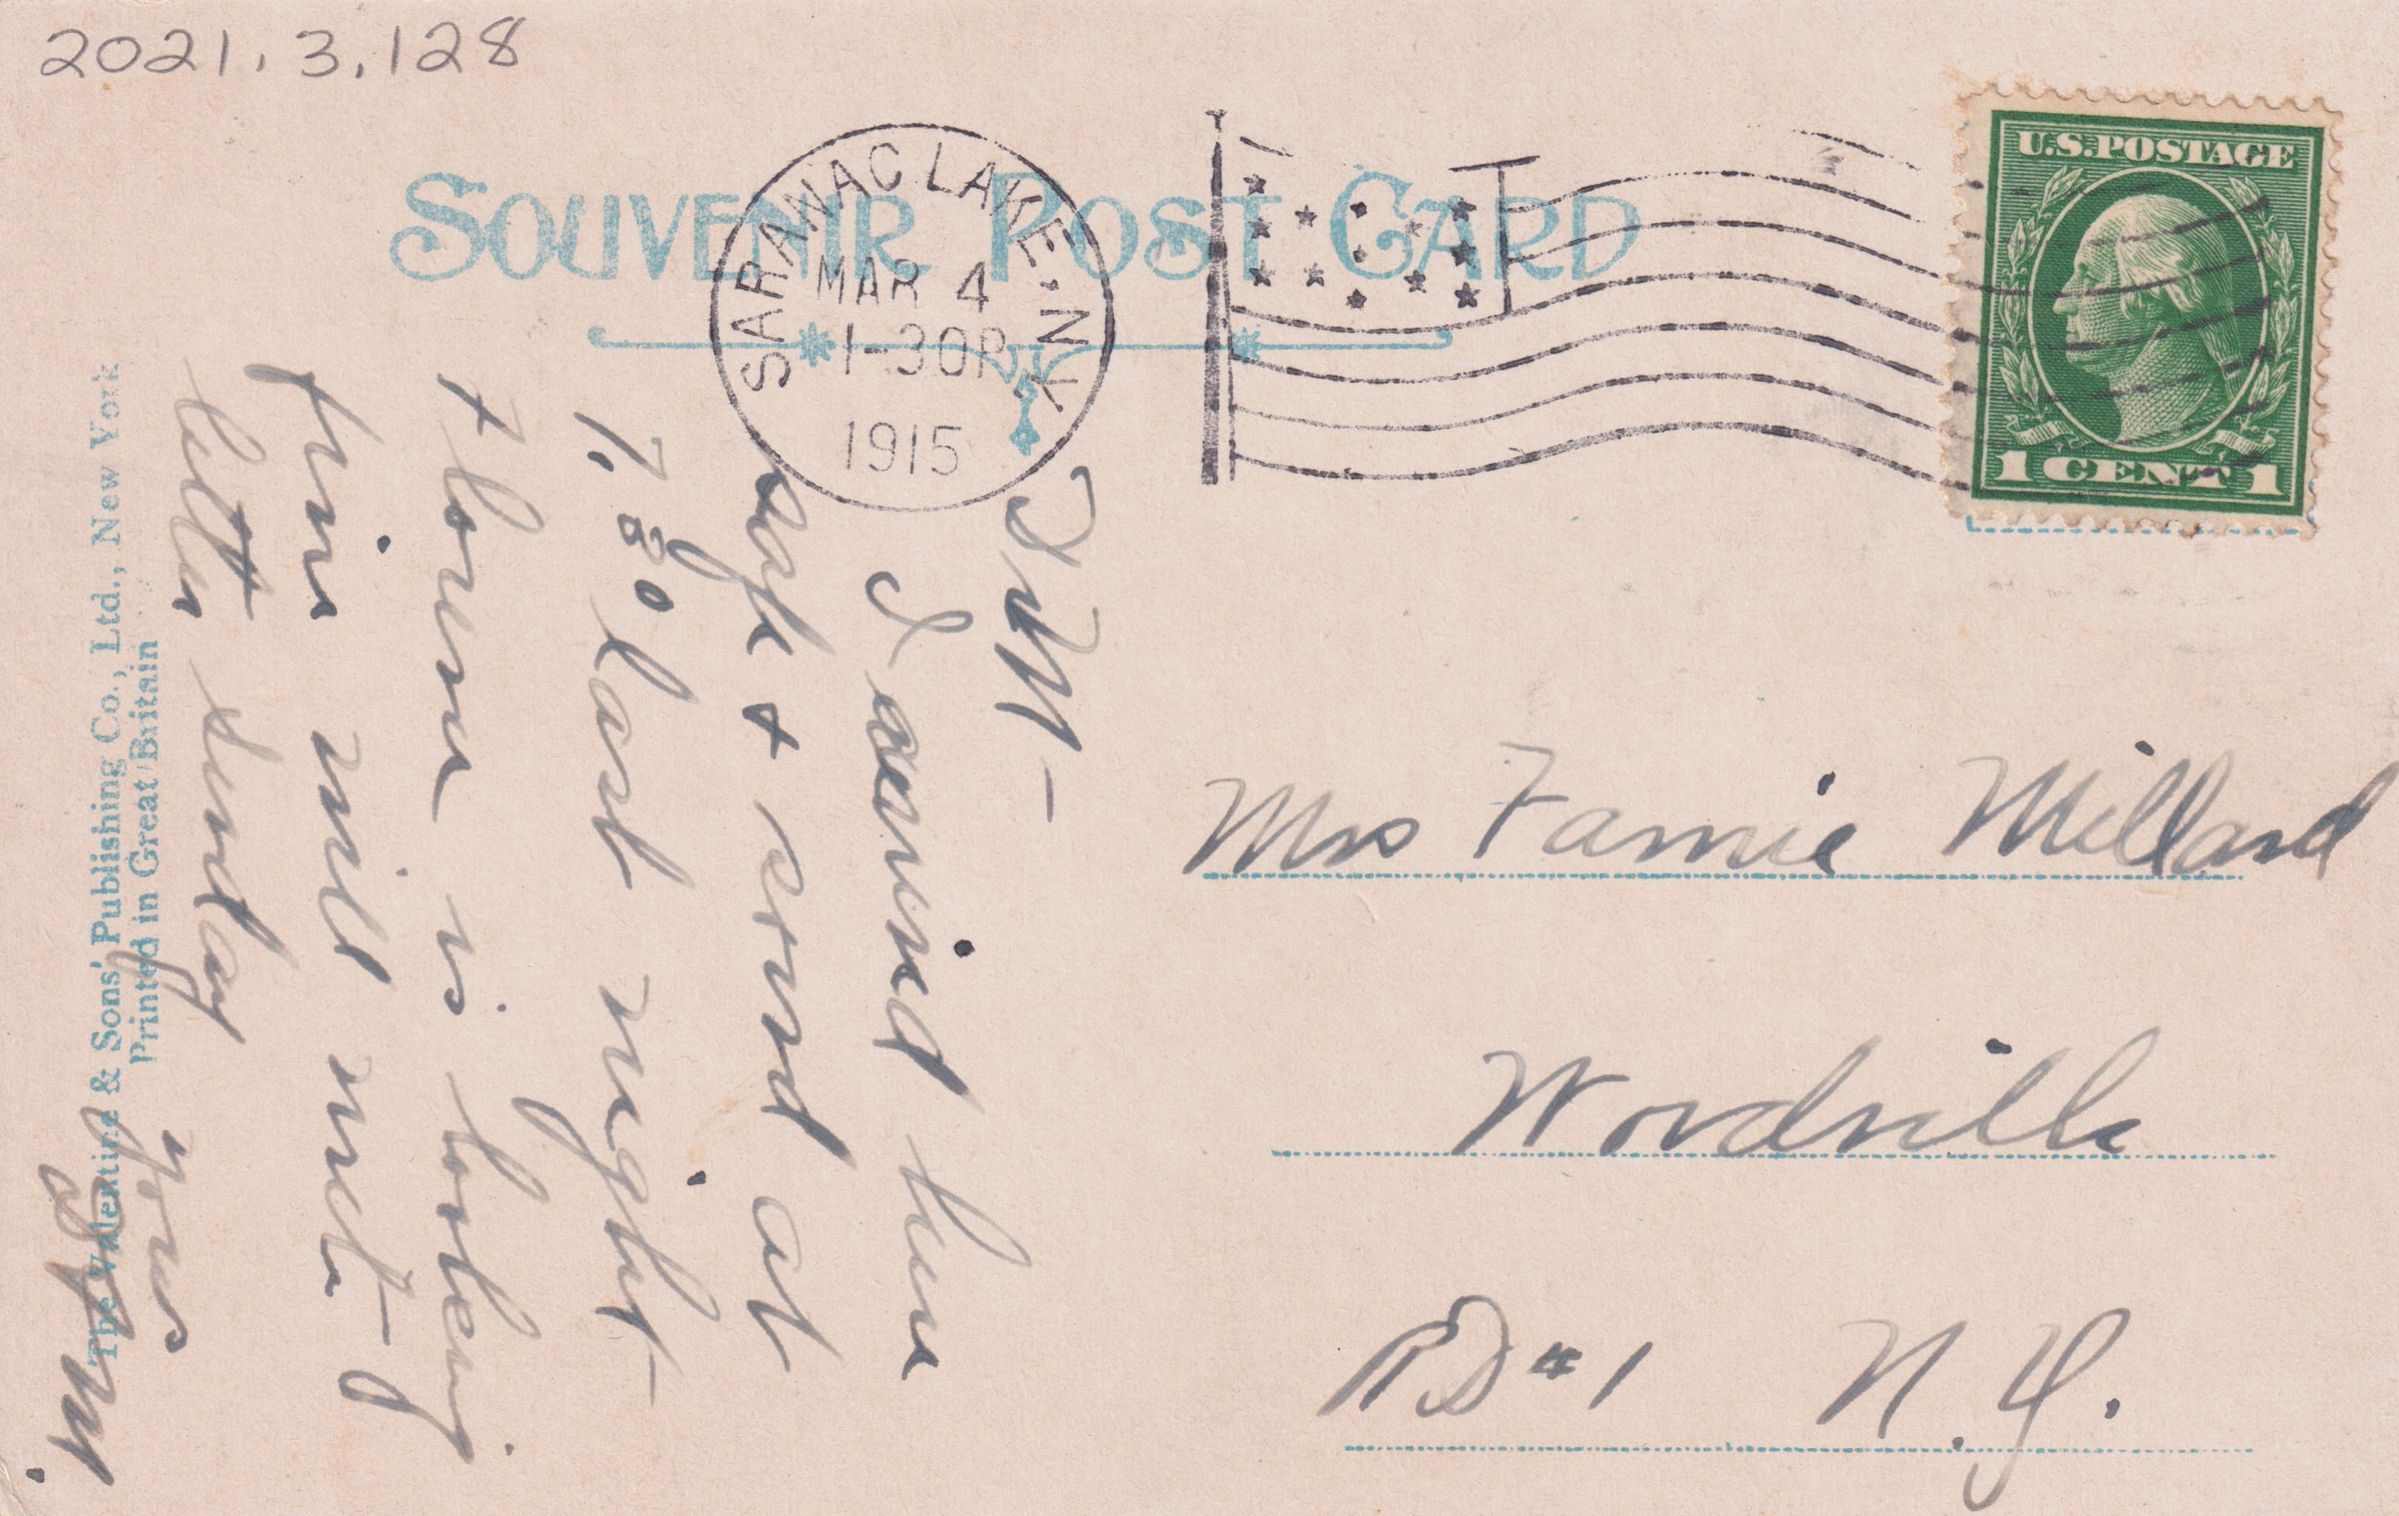 2021.3.128
SOUVENIR POST CARD
SARANAC LAKE. N.Y.
MAR 4
1-30P
1915
U.S.POSTAGE
1 CENT 1
I arrived here
safe + sound at
7.80 last night-
Florence is looking
fine will write
letter Sunday
yours
Mrs Fannie Millard
Woodville
RD #1 N.Y.
The Valentine & Sons' Publishing Co., Ltd., New York
Printed in Great Britain